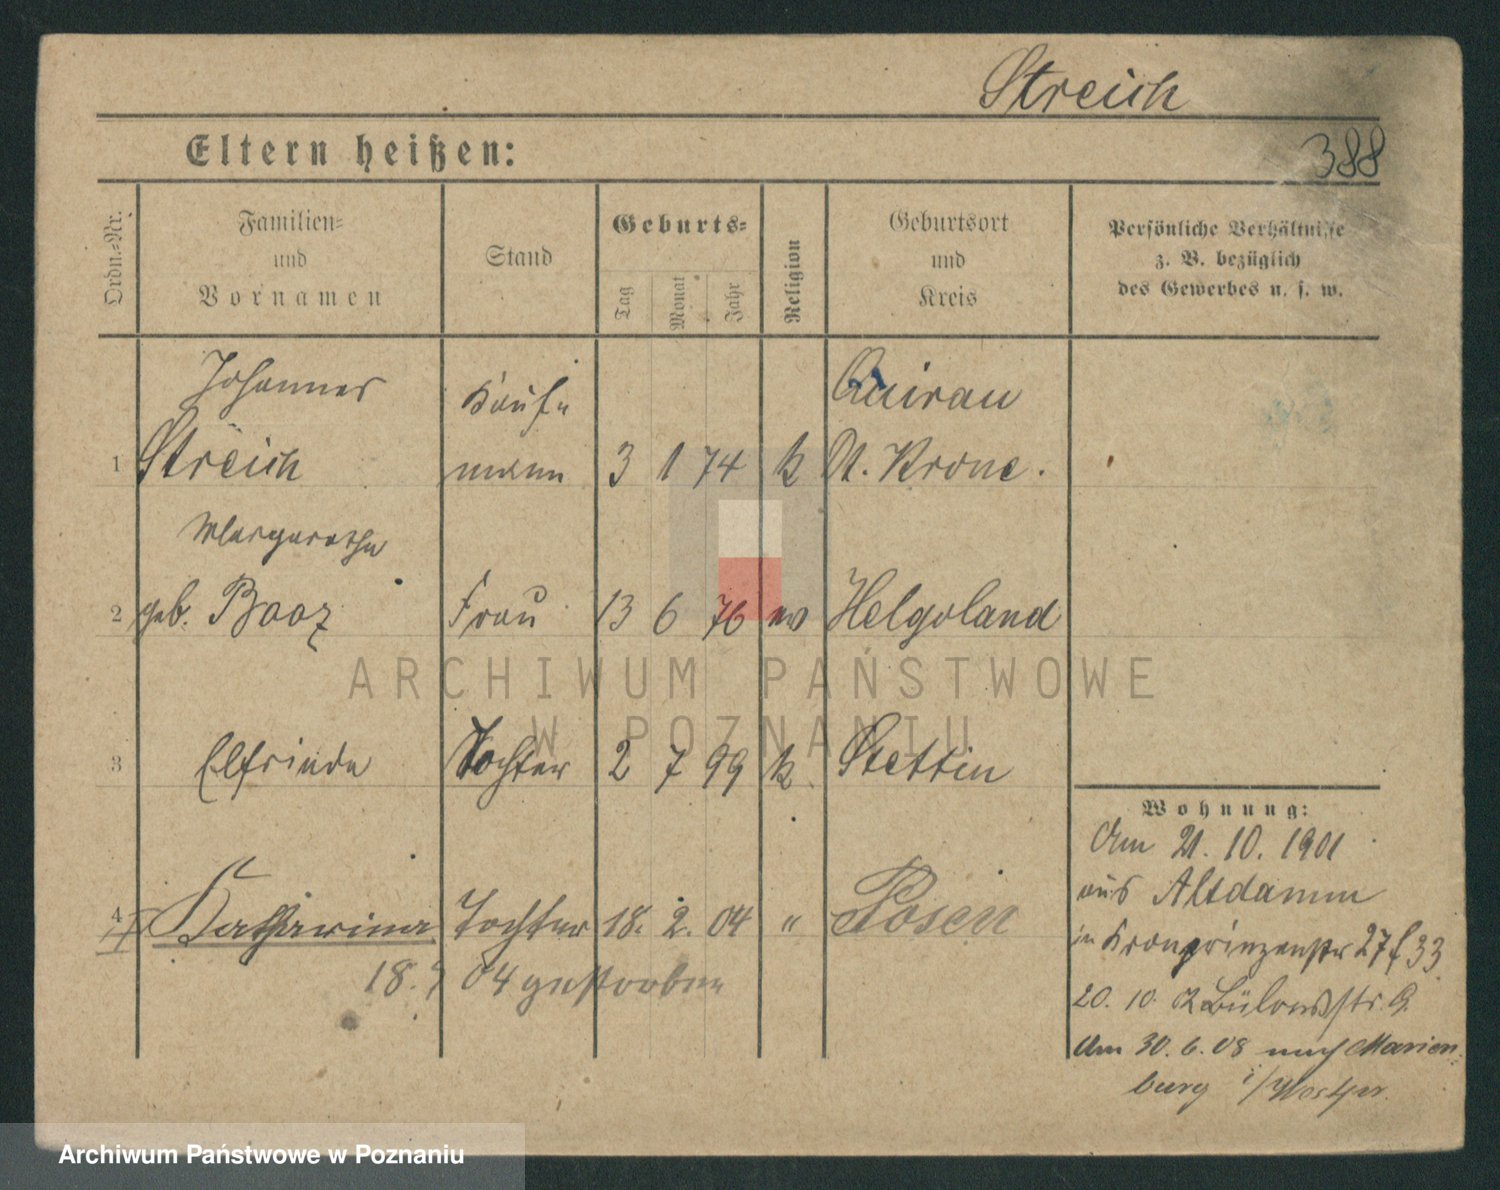 Streich
388
Eltern heißen:
Ordn.-Nr.
Familien-
und
Vornamen
Stand
Geburts-
Tag
Monat
Jahr
Religion
Geburtsort
und
Kreis
Persönliche Verhältnisse
z. B. bezüglich
des Gewerbes u. s. w.
Johannes Kauf- Quiram
1 Streich mann 3 1 74 k Dt. Krone.
Margarethe
2 geb. Booz Frau 13 6 76 ev Helgoland
3 Elfriede Tochter 2 7 99 k. Stettin
4 Katharina Tochter 18. 2. 04 " Posen
18. 9 04 gestorben
Wohnung:
Am 21. 10. 1901
aus Altdamm
in Kronprinzenstr 27 f 33
20. 10. Bülowstr. 9.
Am 30. 6. 08 nach Marien-
burg i/Westpr.
ARCHIWUM PAŃSTWOWE
W POZNANIU
Archiwum Państwowe w Poznaniu